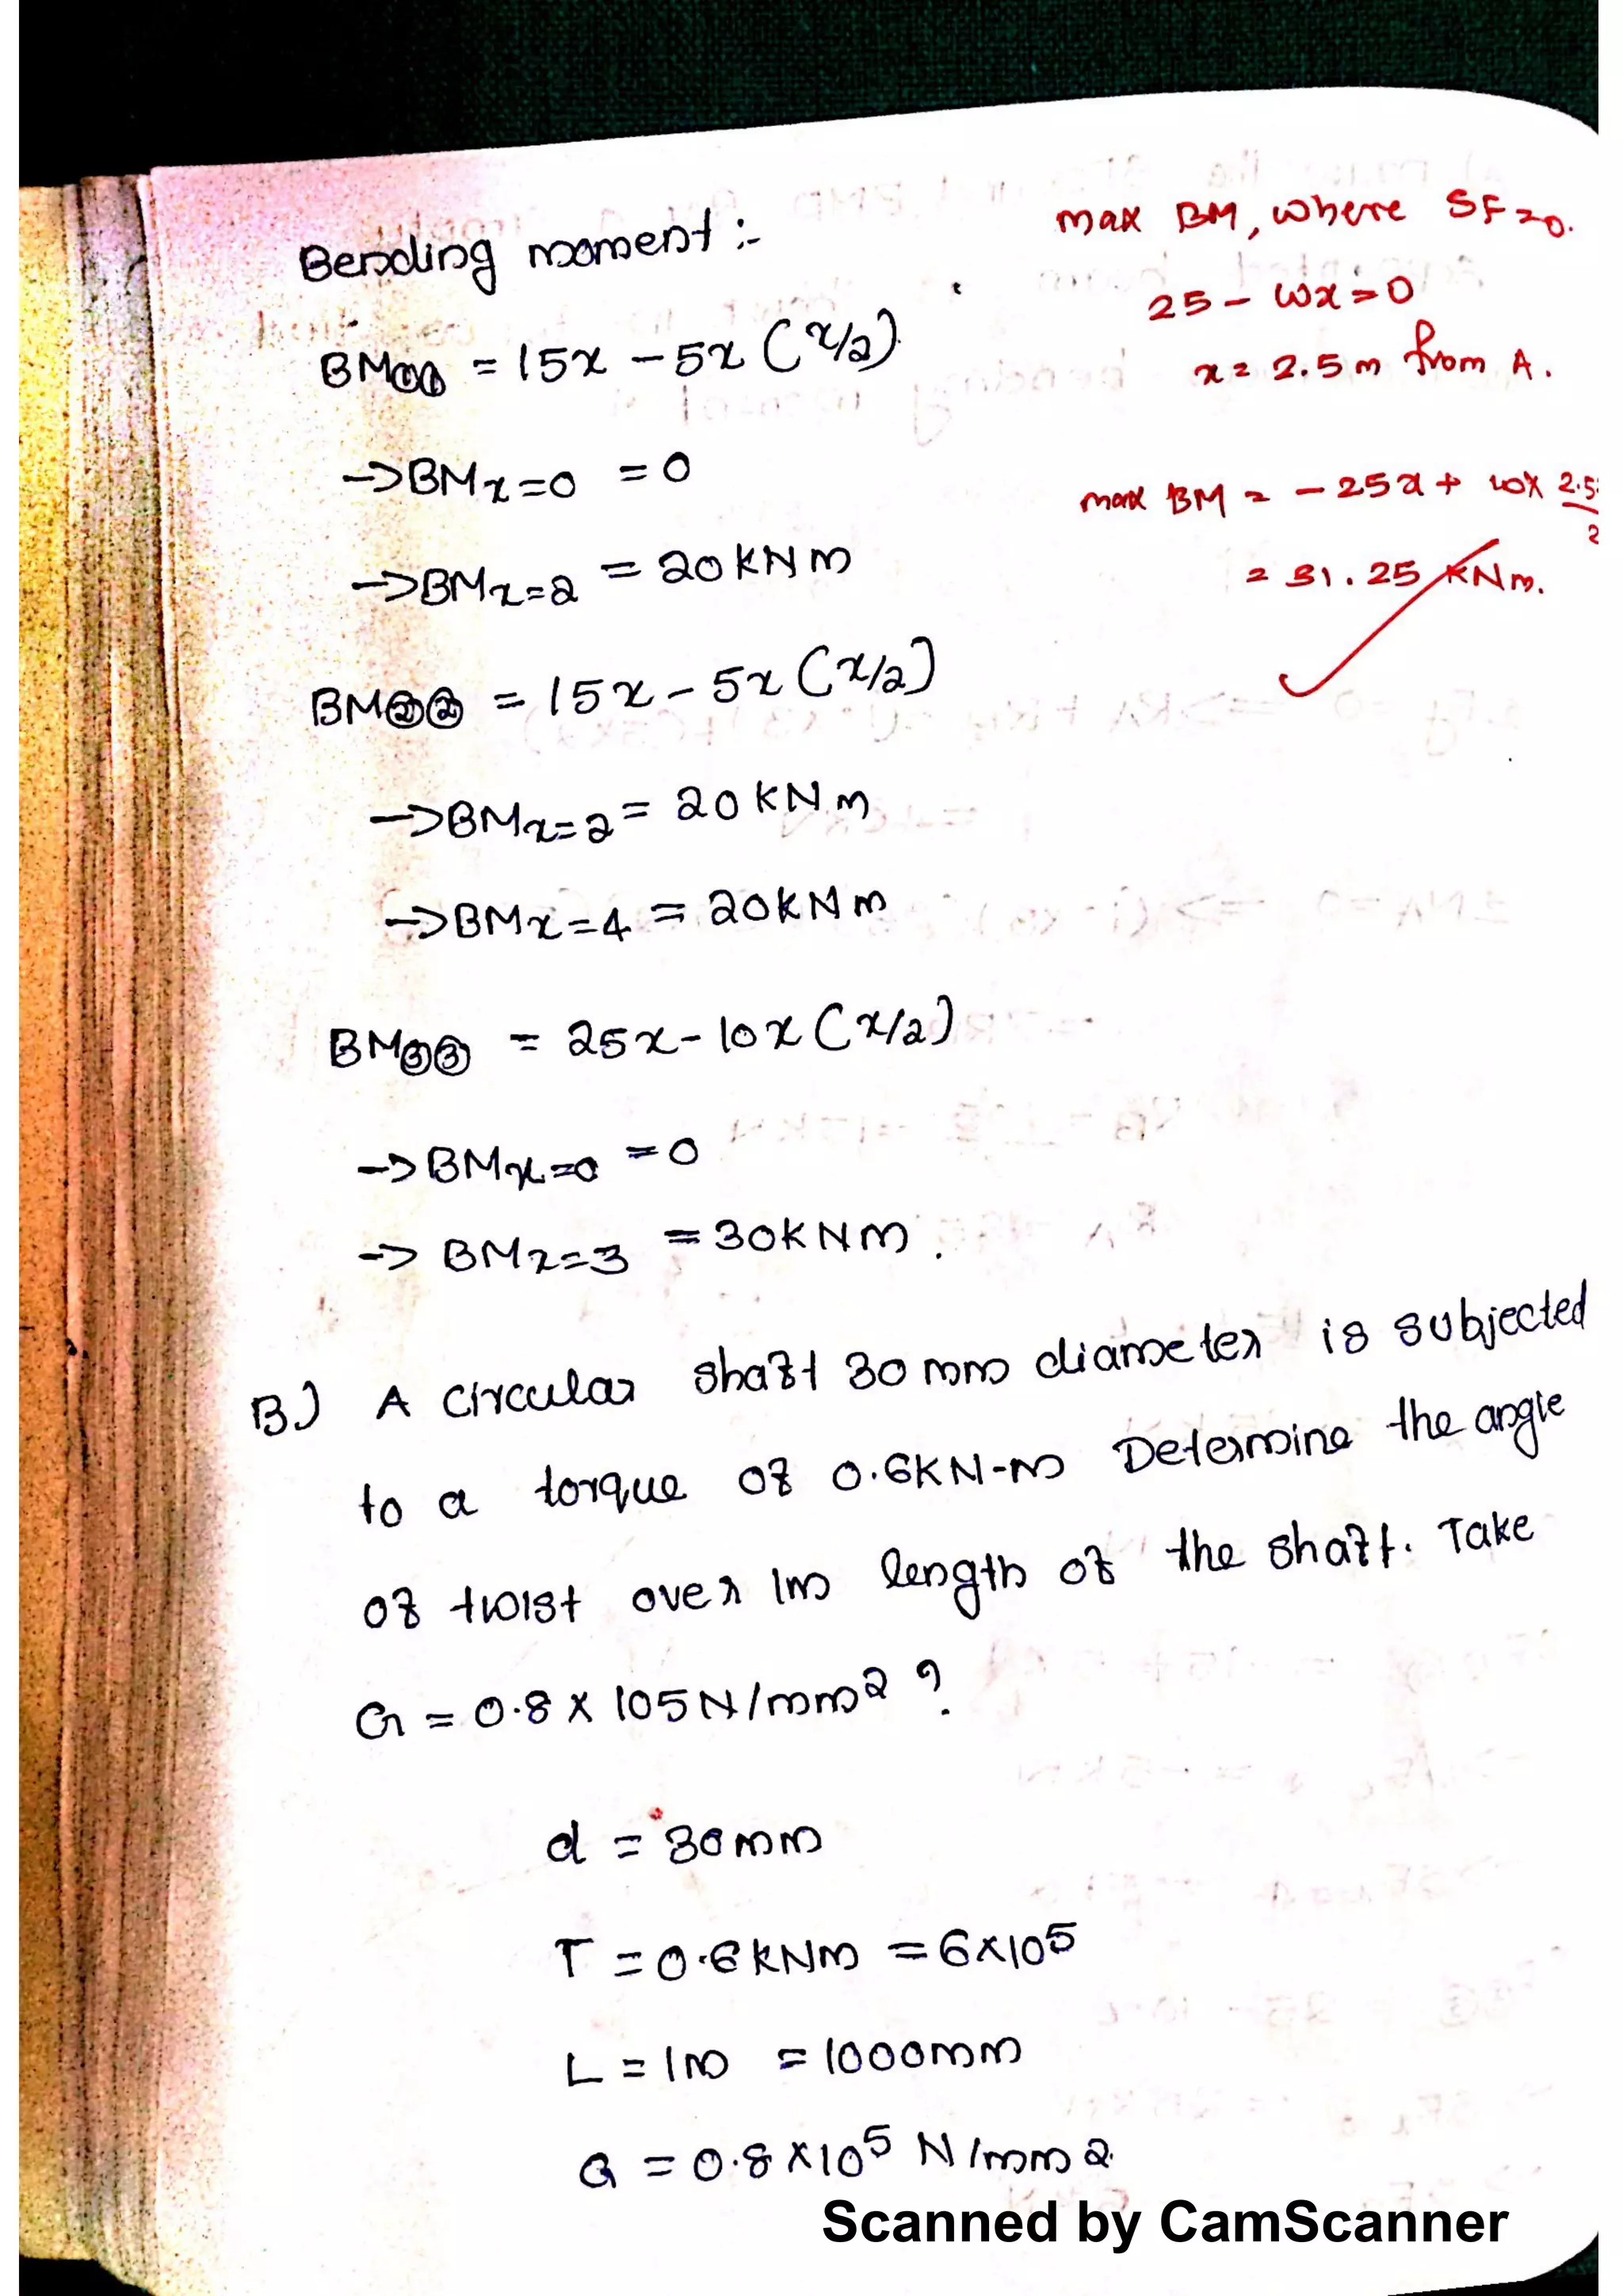 Bending moment :-
BM①① = 15x - 5x (x/2)
->BMx=0 = 0
->BMx=2 = 20 KN m
BM②② = 15x - 5x (x/2)
->BMx=2 = 20 KN m
->BMx=4 = 20KN m
BM③③ = 25x - 10x (x/2)
->BMx=0 = 0
-> BMx=3 = 30KNm.
max BM, where SF=0.
25 - 10x = 0
x = 2.5 m from A.
max BM = - 25x + 10x 2.5
2
= 31.25 KNm.
B) A circular shaft 30 mm diameter is subjected
to a torque of 0.6KN-m Determine the angle
of twist over 1m length of the shaft. Take
G = 0.8 x 105 N/mm2 ?
d = 30mm
T = 0.6 KNm = 6x10⁵
L = 1m = 1000mm
G = 0.8 x10⁵ N/mm2
Scanned by CamScanner